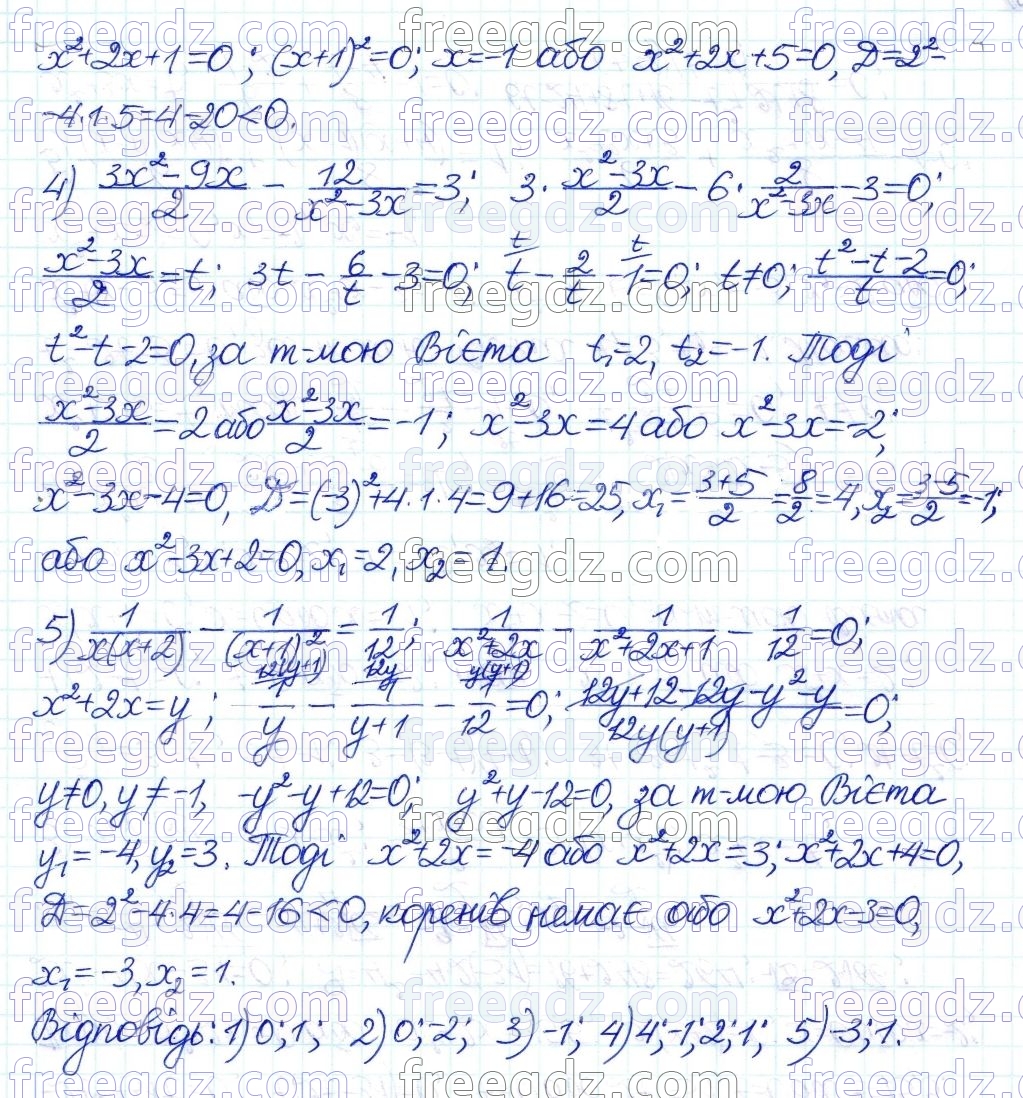 x²+2x+1=0; (x+1)²=0; x=-1 або x²+2x+5=0, Д=2²-
-4·1·5=4-20<0.
4) (3x²-9x)/2 - 12/(x²-3x) = 3; 3·(x²-3x)/2 - 6·2/(x²-3x) - 3=0;
(x²-3x)/2 = t; 3t - 6/t - 3=0; t - 2/t - 1=0; t≠0; (t²-t-2)/t = 0;
t²-t-2=0, за т-мою Вієта t₁=2, t₂=-1. Тоді
(x²-3x)/2 = 2 або (x²-3x)/2 = -1; x²-3x=4 або x²-3x=-2;
x²-3x-4=0, Д=(-3)²+4·1·4=9+16=25, x₁=(3+5)/2=8/2=4, x₂=(3-5)/2=-1;
або x²-3x+2=0, x₁=2, x₂=1.
5) 1/(x(x+2)) - 1/(x+1)² = 1/12; 1/(x²+2x) - 1/(x²+2x+1) - 1/12 = 0;
x²+2x=y; 1/y - 1/(y+1) - 1/12 = 0; (12y+12-12y-y²-y)/(12y(y+1)) = 0;
y≠0, y≠-1, -y²-y+12=0; y²+y-12=0, за т-мою Вієта
y₁=-4, y₂=3. Тоді x²+2x=-4 або x²+2x=3; x²+2x+4=0,
Д=2²-4·4=4-16<0, коренів немає або x²+2x-3=0,
x₁=-3, x₂=1.
Відповідь: 1) 0; 1; 2) 0; -2; 3) -1; 4) 4; -1; 2; 1; 5) -3; 1.